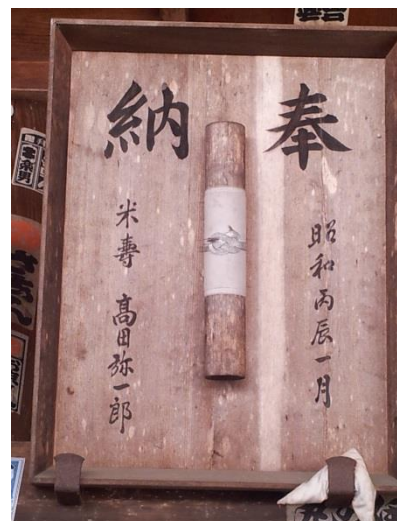 奉納
昭和丙辰一月
米壽 髙田弥一郎